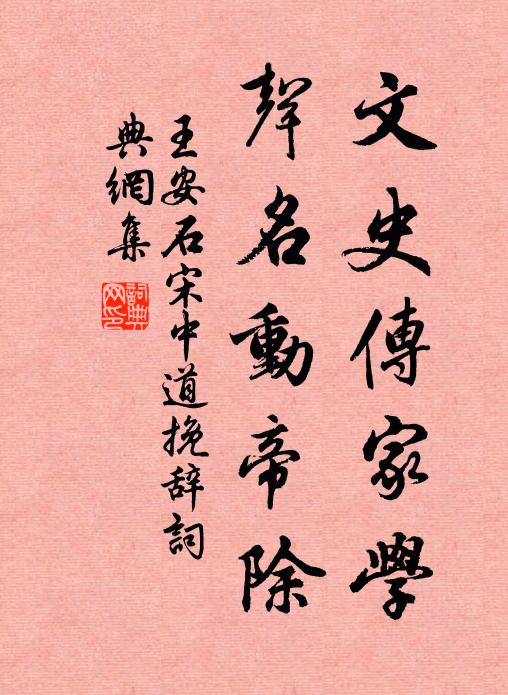 文史傳家學
聲名動帝除
王安石宋中道挽辞詞
典網集
詞典网印